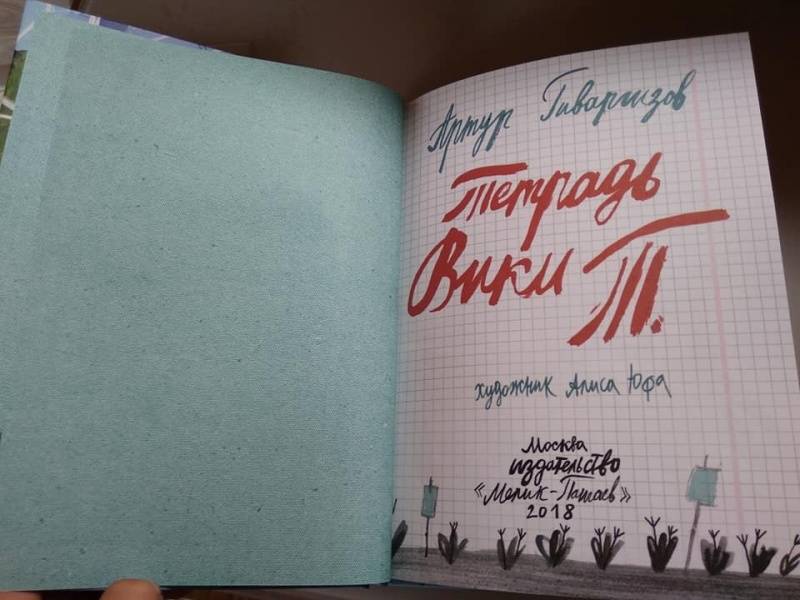 Артур Гиваргизов
Тетрадь
Вики Т.
художник Алиса Юфа
Москва
издательство
«Мелик-Пашаев»
2018